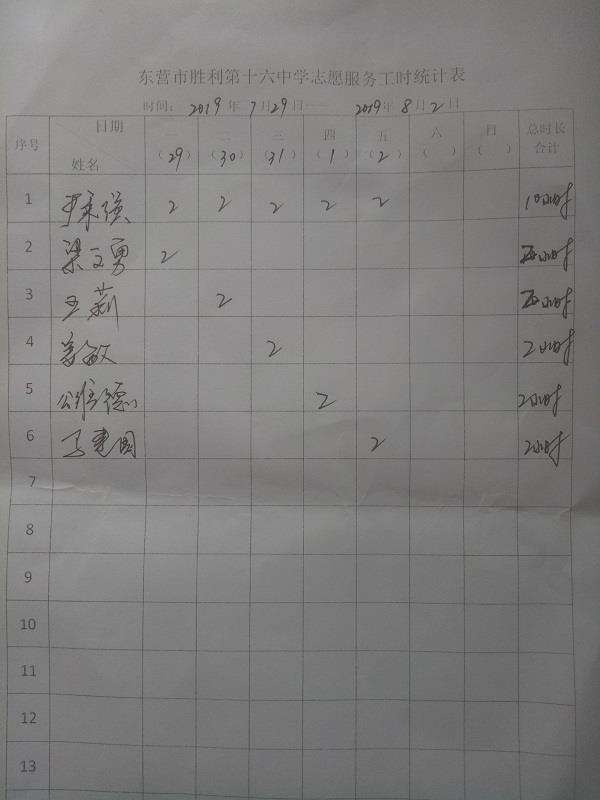 东营市胜利第十六中学志愿服务工时统计表
时间: 2019 年 7 月 29 日—— 2019 年 8 月 2 日
序号 日期 姓名 一 (29) 二 (30) 三 (31) 四 (1) 五 (2) 六 ( ) 日 ( ) 总时长合计
1 尹秉强 2 2 2 2 2 10小时
2 梁文勇 2 小时
3 王莉 2 小时
4 敏 2 2小时
5 公维德 2 2小时
6 马建国 2 2小时
7
8
9
10
11
12
13